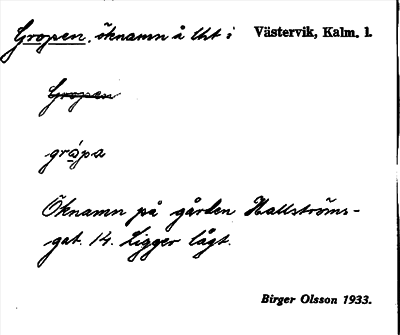 Gropen, öknamn å lht i Västervik, Kalm. l.
Gropen
gròpa
Öknamn på gården Hallströms-
gat. 14. Ligger lågt.
Birger Olsson 1933.